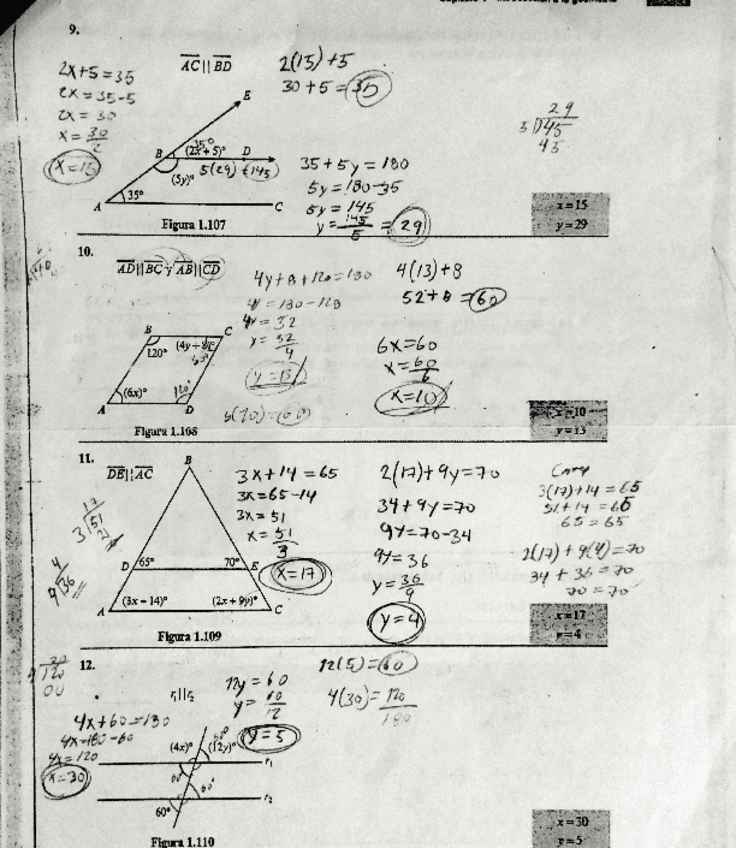 9.
2x+5=35
2x=35-5
2x=30
x=30/2
x=15
AC || BD
2(15)+5
30+5=35
E
35°
B
(2x+5)°
D
5(29)=145
(5y)°
A
35°
C
Figura 1.107
35+5y=180
5y=180-35
5y=145
y=145/5=29
29
5 45
45
x=15
y=29
10.
AD || BC y AB || CD
4y+8+120=180
4y=180-128
4y=52
y=52/4
y=13
4(13)+8
52+8=60
6x=60
x=60/6
x=10
B
C
120°
(6x)°
120°
A
D
Figura 1.108
x=10
y=13
11.
DE || AC
B
3x+14=65
3x=65-14
3x=51
x=51/3
x=17
2(17)+9y=70
34+9y=70
9y=70-34
9y=36
y=36/9
y=4
3(17)+14=65
51+14=65
65=65
2(17)+9(4)=70
34+36=70
70=70
17
3 51
4
9 36
D
65°
70°
E
(3x-14)°
(2x+9y)°
A
C
Figura 1.109
x=17
y=4
12.
r1 || r2
4x+60=180
4x=180-60
4x=120
x=30
12y=60
y=60/12
y=5
12(5)=60
4(30)=120
180
(4x)°
(12y)°
r1
60°
r2
60°
Figura 1.110
x=30
y=5